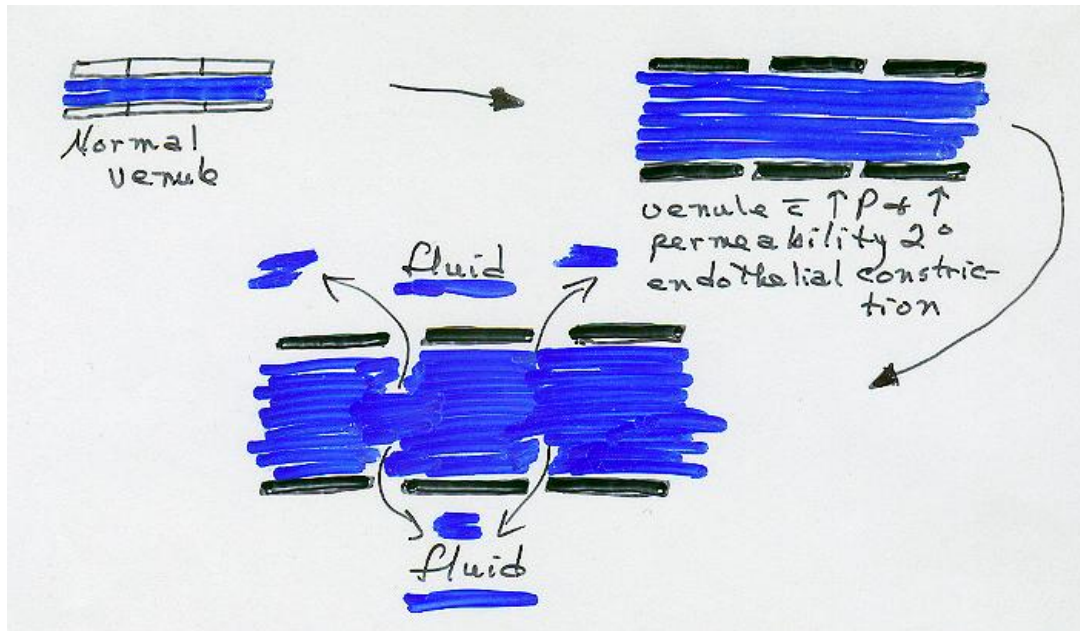 Normal
venule
venule c̄ ↑ P + ↑
permeability 2°
endothelial constric-
tion
fluid
fluid